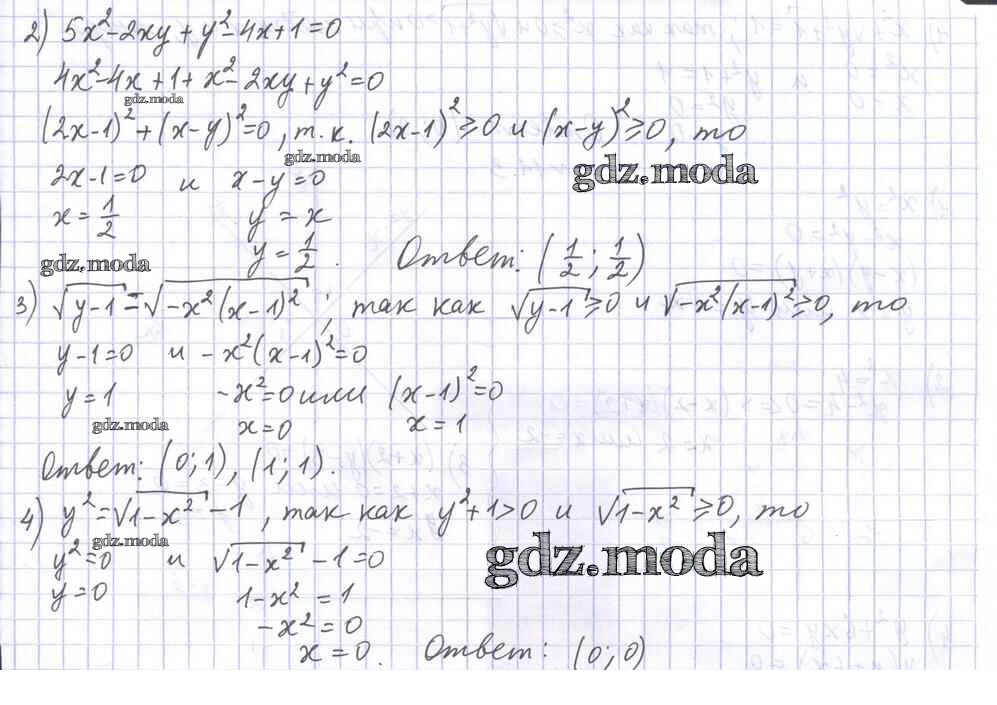 2) 5x²-2xy+y²-4x+1=0
4x²-4x+1+x²-2xy+y²=0
gdz.moda
(2x-1)²+(x-y)²=0, т.к. (2x-1)²≥0 и (x-y)²≥0, то
gdz.moda
gdz.moda
2x-1=0 и x-y=0
x=1/2 y=x
y=1/2. Ответ: (1/2; 1/2)
gdz.moda
3) √(y-1)=√(-x²(x-1)²); так как √(y-1)≥0 и √(-x²(x-1)²)≥0, то
y-1=0 и -x²(x-1)²=0
y=1 -x²=0 или (x-1)²=0
gdz.moda
x=0 x=1
Ответ: (0;1), (1;1).
4) y²=√(1-x²)-1, так как y²+1>0 и √(1-x²)≥0, то
gdz.moda
y²=0 и √(1-x²)-1=0
gdz.moda
y=0 1-x²=1
-x²=0
x=0. Ответ: (0;0)